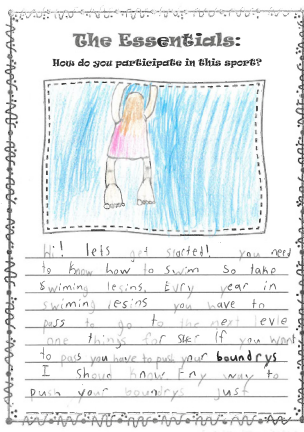 The Essentials:
How do you participate in this sport?
Hi! lets get started! you need
to know how to swim so take
swiming lesins. Evry year in
swiming lesins you have to
pass to go to the next levle
one things for suer If you want
to pass you have to push your boundrys
I shoud know Evry way to
push your boundrys just